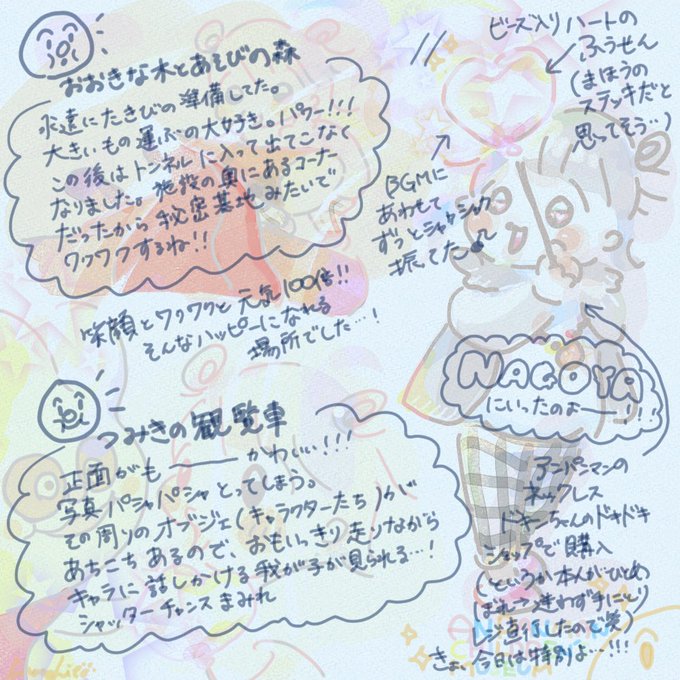 おおきな木とあそびの森
永遠にたきびの準備してた。
大きいもの運ぶの大好き。パワー!!!
この後はトンネルに入って出てこなく
なりました。施設の奥にあるコーナー
だったから秘密基地みたいで
ワクワクするね!!
笑顔とワクワクと元気100倍!!
そんなハッピーになれる
場所でした…!
つみきの観覧車
正面がも――かわいい!!!
写真パシャパシャとってしまう。
その周りのオブジェ(キャラクターたち)が
あちこちあるので、おもいっきり走りながら
キャラに話しかける我が子が見られる…!
シャッターチャンスまみれ
ビーズ入りハートの
ふうせん
(まほうの
ステッキだと
思ってそう…)
BGMに
あわせて
ずっとシャカシャカ
振ってた♪
NAGOYA
にいったのよ――!!!
アンパンマンの
ネックレス
ドキンちゃんのドキドキ
ショップで購入
(というか本人がひとめ
ぼれ→迷わず手にとり
レジ直行したので笑)
きょ、今日は特別よ…!!!